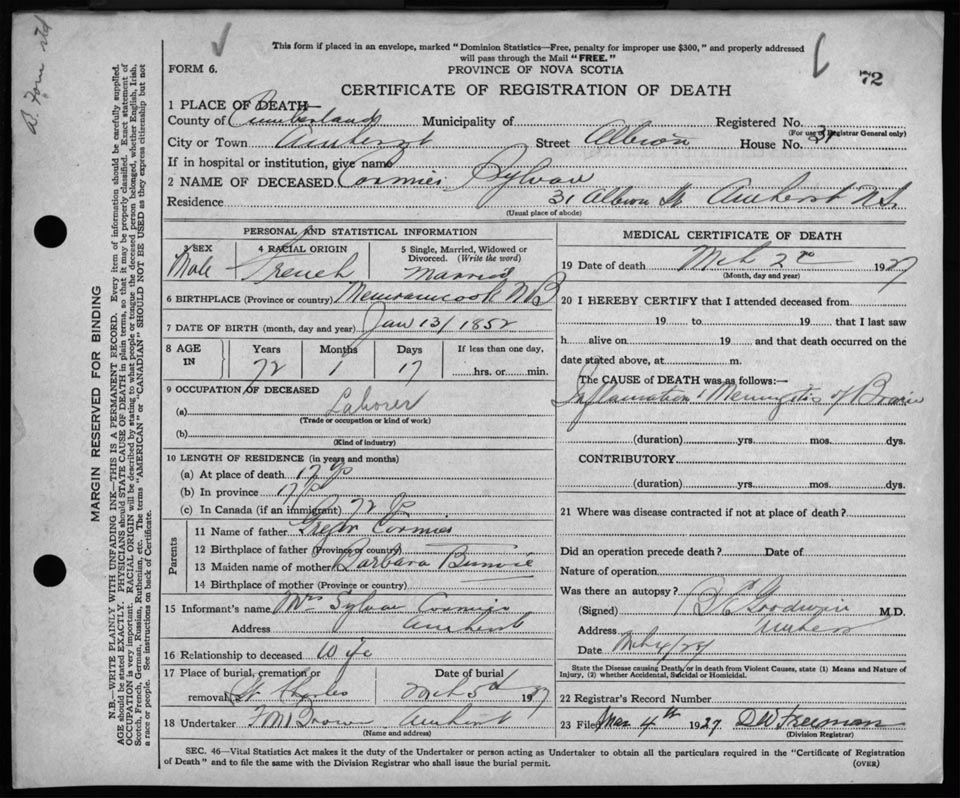 This form if placed in an envelope, marked "Dominion Statistics—Free, penalty for improper use $300," and properly addressed
will pass through the Mail "FREE."
FORM 6.
PROVINCE OF NOVA SCOTIA
72
CERTIFICATE OF REGISTRATION OF DEATH
1 PLACE OF DEATH—
County of Cumberland Municipality of Registered No.
(For use of Registrar General only)
City or Town Amherst Street Albion House No. 31
If in hospital or institution, give name
2 NAME OF DECEASED. Cormier Sylvan
Residence 31 Albion St Amherst N.S.
(Usual place of abode)
PERSONAL AND STATISTICAL INFORMATION
3 SEX 4 RACIAL ORIGIN 5 Single, Married, Widowed or Divorced. (Write the word)
Male French Married
6 BIRTHPLACE (Province or country) Memramcook N B
7 DATE OF BIRTH (month, day and year) Jan 13/1852
8 AGE IN Years Months Days If less than one day,
72 1 17 hrs. or min.
9 OCCUPATION OF DECEASED
(a) Laborer
(Trade or occupation or kind of work)
(b)
(Kind of industry)
10 LENGTH OF RESIDENCE (in years and months)
(a) At place of death 17
(b) In province 17
(c) In Canada (if an immigrant) 72
Parents
11 Name of father Cormier
12 Birthplace of father (Province or country)
13 Maiden name of mother Barbara
14 Birthplace of mother (Province or country)
15 Informant's name Mrs Sylvan Cormier
Address Amherst
16 Relationship to deceased Wife
17 Place of burial, cremation or removal St. Charles Date of burial Mch 3d 1927
18 Undertaker Brown Amherst
(Name and address)
MEDICAL CERTIFICATE OF DEATH
19 Date of death Mch 2 1927
(Month, day and year)
20 I HEREBY CERTIFY that I attended deceased from
19 to 19 that I last saw
h alive on 19 and that death occurred on the
date stated above, at m.
The CAUSE OF DEATH was as follows:—
Inflamation Meningitis of Brain
(duration) yrs. mos. dys.
CONTRIBUTORY
(duration) yrs. mos. dys.
21 Where was disease contracted if not at place of death?
Did an operation precede death? Date of
Nature of operation
Was there an autopsy?
(Signed) Goodwin M.D.
Address Amherst
Date
State the Disease causing Death, or in death from Violent Causes, state (1) Means and Nature of
Injury, (2) whether Accidental, Suicidal or Homicidal.
22 Registrar's Record Number
23 Filed Mar 4th 1927 D W Freeman
(Division Registrar)
SEC. 46—Vital Statistics Act makes it the duty of the Undertaker or person acting as Undertaker to obtain all the particulars required in the "Certificate of Registration
of Death" and to file the same with the Division Registrar who shall issue the burial permit.
(OVER)
MARGIN RESERVED FOR BINDING
N.B.—WRITE PLAINLY WITH UNFADING INK—THIS IS A PERMANENT RECORD. Every item of information should be carefully supplied.
AGE should be stated EXACTLY. PHYSICIANS should STATE CAUSE OF DEATH in plain terms, so that it may be properly classified. Exact statement of
OCCUPATION is very important. RACIAL ORIGIN will be described by stating to what people or tongue the deceased person belonged, whether English, Irish,
Scotch, French, German, Russian, Ruthenian, etc. The terms "AMERICAN" or "CANADIAN" SHOULD NOT BE USED as they express citizenship but not
a race or people. See instructions on back of Certificate.